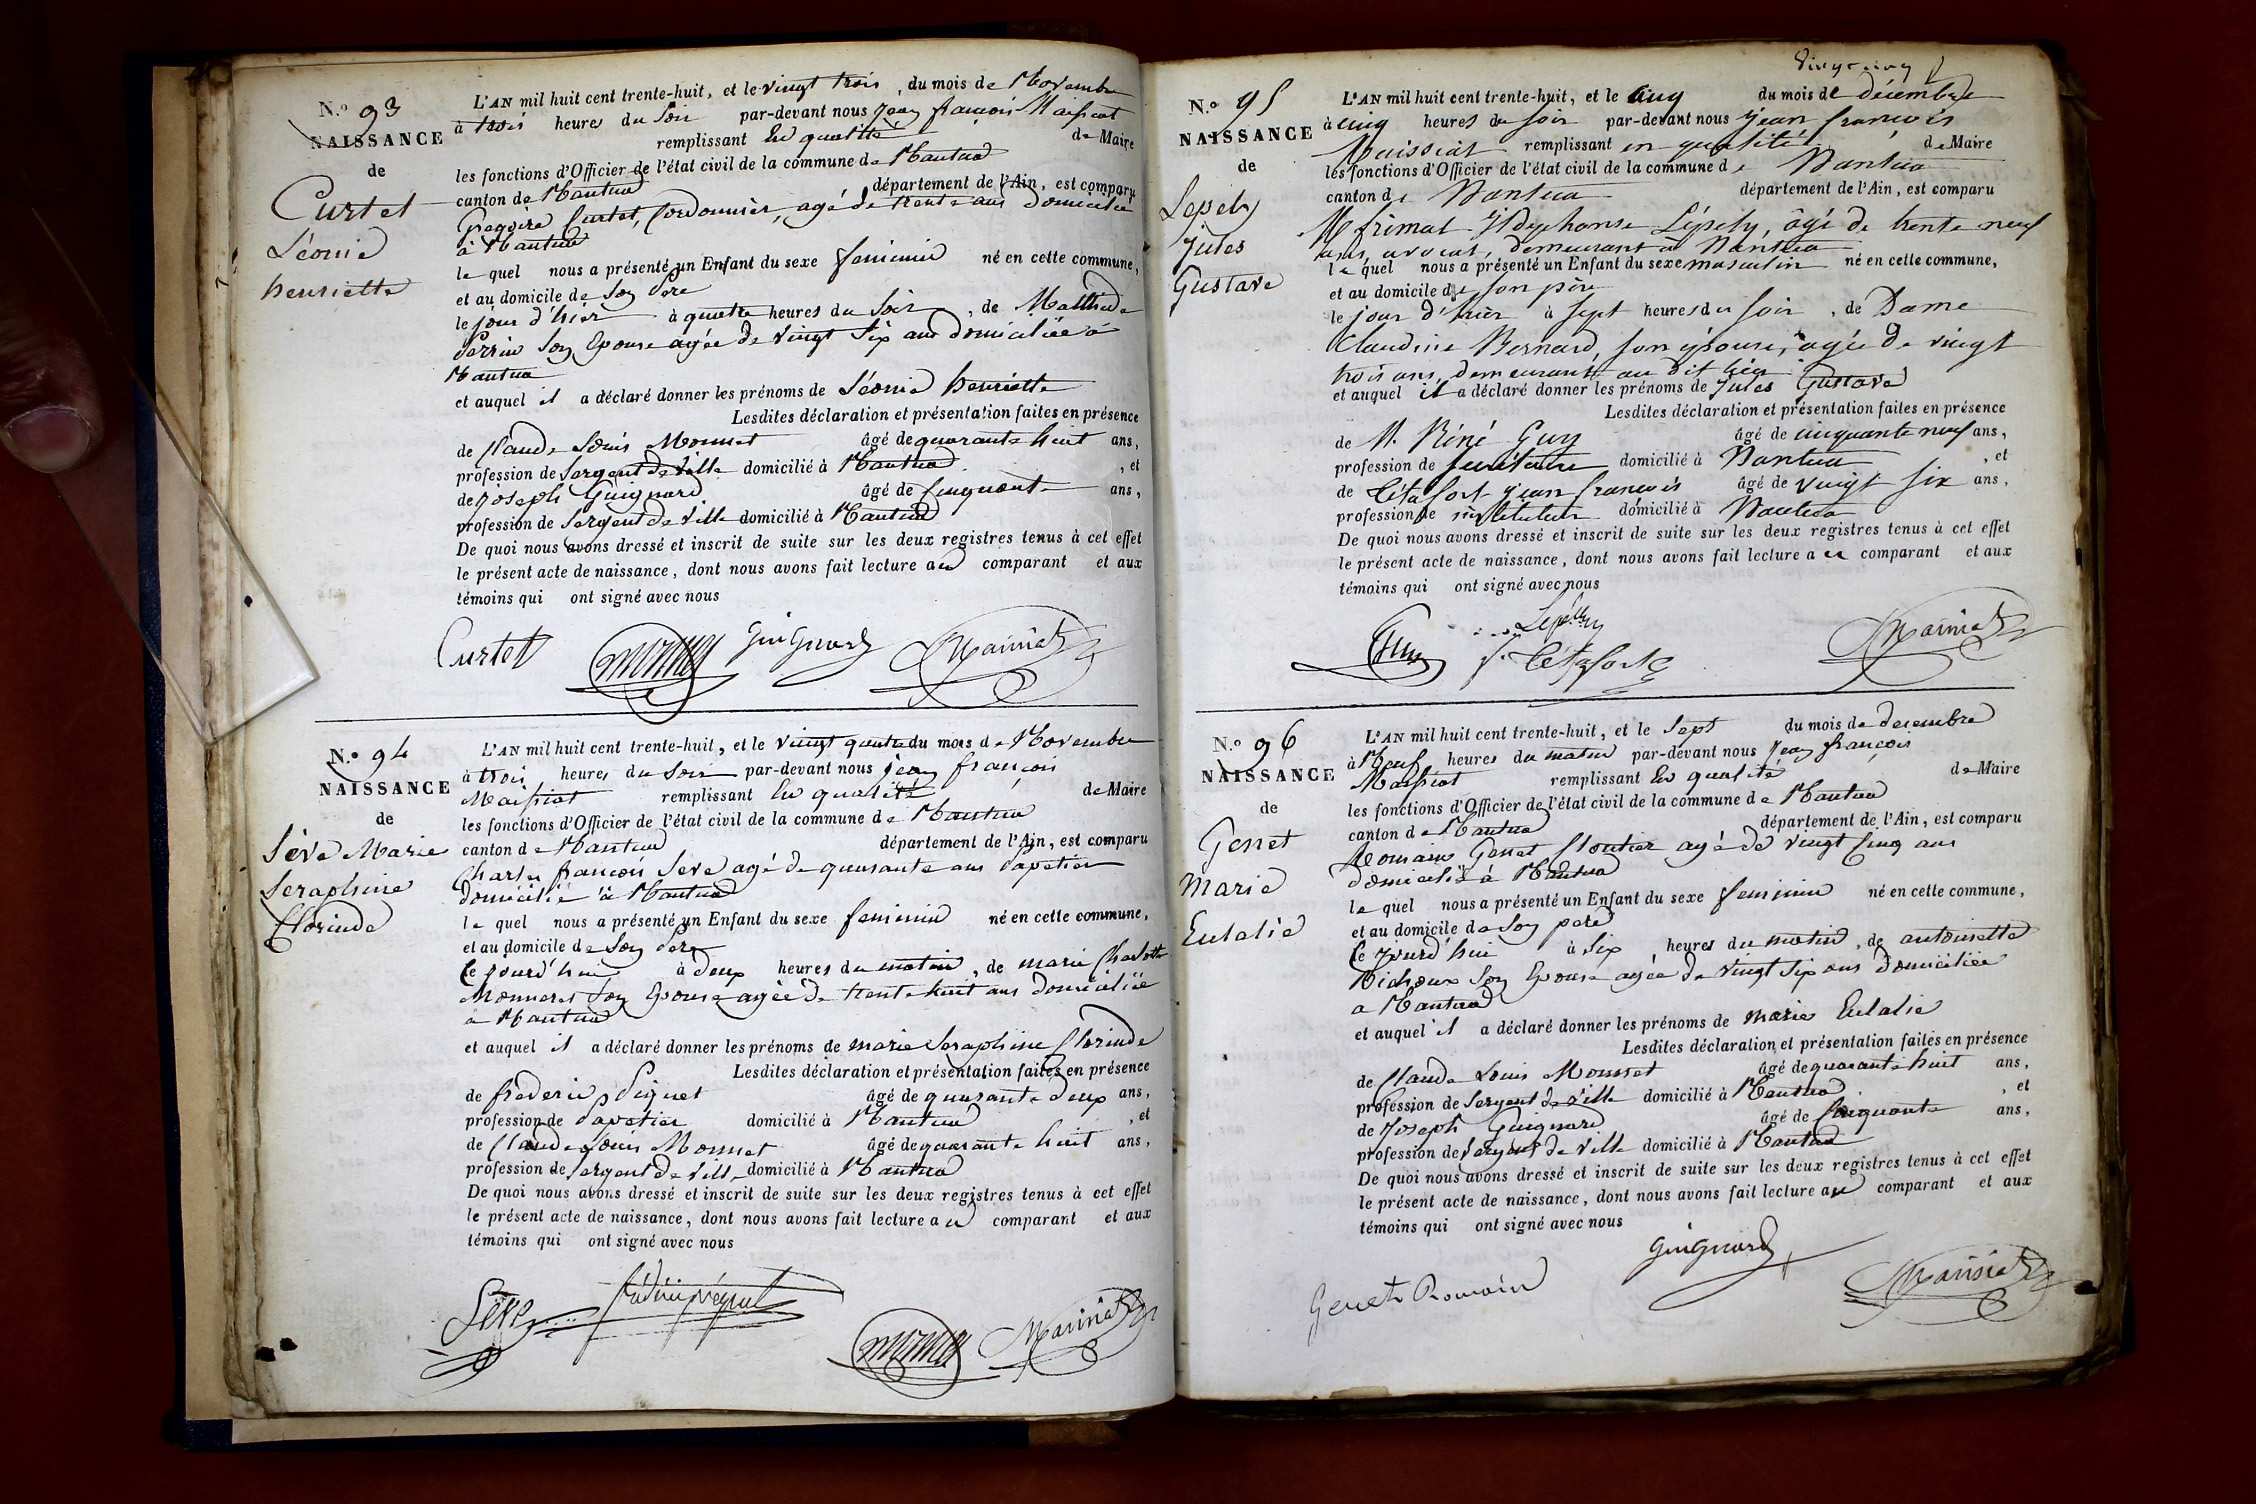 N.° 93
NAISSANCE
de
Curtet
Léonie
henriette
L'AN mil huit cent trente-huit, et le vingt trois, du mois de Novembre
à trois heures du Soir par-devant nous jean françois Maissiat
remplissant En qualité de Maire
les fonctions d'Officier de l'état civil de la commune de Nantua
canton de Nantua département de l'Ain, est comparu
Gregoire Curtet, Cordonnier, agé de trente ans Domicilié
à Nantua
le quel nous a présenté un Enfant du sexe feminin né en cette commune,
et au domicile de Son Pere
le jour d'hier à quatre heures du Soir, de Mathilde
Perrin Son Epouse agée de vingt Six ans domiciliée à
Nantua
et auquel il a déclaré donner les prénoms de Léonie henriette
Lesdites déclaration et présentation faites en présence
de Claude Louis Monnet âgé de quarante huit ans,
profession de Sergent de Ville domicilié à Nantua, et
de Joseph Guignard âgé de Cinquante ans,
profession de Sergent de Ville domicilié à Nantua
De quoi nous avons dressé et inscrit de suite sur les deux registres tenus à cet effet
le présent acte de naissance, dont nous avons fait lecture au comparant et aux
témoins qui ont signé avec nous
Curtet Guignard Maissiat
N.° 94
NAISSANCE
de
Sève Marie
Seraphine
Clorinde
L'AN mil huit cent trente-huit, et le vingt quatre du mois de Novembre
à trois heures du Soir par-devant nous jean françois
Maissiat remplissant En qualité de Maire
les fonctions d'Officier de l'état civil de la commune de Nantua
canton de Nantua département de l'Ain, est comparu
Charles françois Seve agé de quarante ans Papetier
domicilié à Nantua
le quel nous a présenté un Enfant du sexe feminin né en cette commune,
et au domicile de Son Pere
Ce jourd'hui à deux heures du matin, de marie Charlotte
Monneret Son Epouse agée de trente huit ans domiciliée
à Nantua
et auquel il a déclaré donner les prénoms de marie Seraphine Clorinde
Lesdites déclaration et présentation faites en présence
de frederic Piquet âgé de quarante deux ans,
profession de Papetier domicilié à Nantua, et
de Claude Louis Monnet âgé de quarante huit ans,
profession de Sergent de Ville domicilié à Nantua
De quoi nous avons dressé et inscrit de suite sur les deux registres tenus à cet effet
le présent acte de naissance, dont nous avons fait lecture au comparant et aux
témoins qui ont signé avec nous
Sève Maissiat
N.° 95
NAISSANCE
de
Lépely
Jules
Gustave
L'AN mil huit cent trente-huit, et le cinq du mois de décembre
à cinq heures du soir par-devant nous jean françois
Maissiat remplissant en qualité de Maire
les fonctions d'Officier de l'état civil de la commune de Nantua
canton de Nantua département de l'Ain, est comparu
M. frimat Ildephonse Lépely, âgé de trente neuf
ans, avocat, demeurant à Nantua
le quel nous a présenté un Enfant du sexe masculin né en cette commune,
et au domicile de son père
le jour d'hier à sept heures du soir, de Dame
Claudine Bernard, son épouse, agée de vingt
trois ans, demeurant au dit lieu
et auquel il a déclaré donner les prénoms de Jules Gustave
Lesdites déclaration et présentation faites en présence
de M. Réné Guy âgé de cinquante neuf ans,
profession de secrétaire domicilié à Nantua, et
de Cétafort jean françois âgé de vingt six ans,
profession de instituteur domicilié à Nantua
De quoi nous avons dressé et inscrit de suite sur les deux registres tenus à cet effet
le présent acte de naissance, dont nous avons fait lecture au comparant et aux
témoins qui ont signé avec nous
Lépely
Guy f. Cétafort Maissiat
N.° 96
NAISSANCE
de
Genet
Marie
Eulalie
L'AN mil huit cent trente-huit, et le Sept du mois de decembre
à Neuf heures du matin par-devant nous jean françois
Maissiat remplissant En qualité de Maire
les fonctions d'Officier de l'état civil de la commune de Nantua
canton de Nantua département de l'Ain, est comparu
Romain Genet Cloutier agé de vingt Cinq ans
domicilié à Nantua
le quel nous a présenté un Enfant du sexe feminin né en cette commune,
et au domicile de Son pere
Ce jourd'hui à Six heures du matin, de antoinette
Son Epouse agée de vingt Six ans domiciliée
a Nantua
et auquel il a déclaré donner les prénoms de marie Eulalie
Lesdites déclaration et présentation faites en présence
de Claude Louis Monnet âgé de quarante huit ans,
profession de Sergent de Ville domicilié à Nantua, et
de Joseph Guignard âgé de Cinquante ans,
profession de Sergent de Ville domicilié à Nantua
De quoi nous avons dressé et inscrit de suite sur les deux registres tenus à cet effet
le présent acte de naissance, dont nous avons fait lecture au comparant et aux
témoins qui ont signé avec nous
Genet Romain Guignard Maissiat